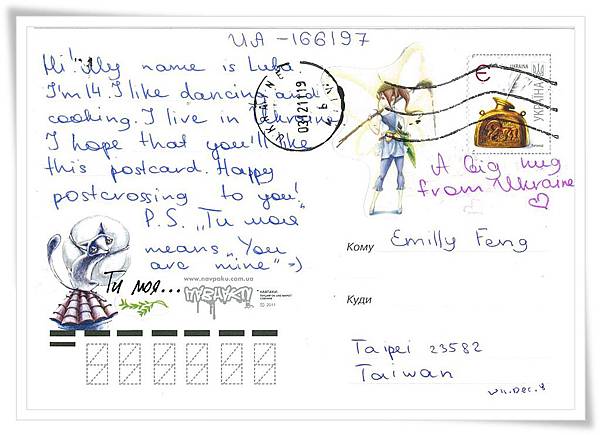 UA-166197
Hi! My name is Luba.
I'm 14. I like dancing and
cooking. I live in Ukraine
I hope that you'll like
this postcard. Happy
postcrossing to you!
P.S. „Ти моя"
means „You
are mine" :-)
03121119
УКРАЇНА
A big hug
from Ukraine
Кому Emilly Feng
Ти моя...
www.navpaku.com.ua
НАВПАКИ
© 2011
Куди
Taipei 23582
Taiwan